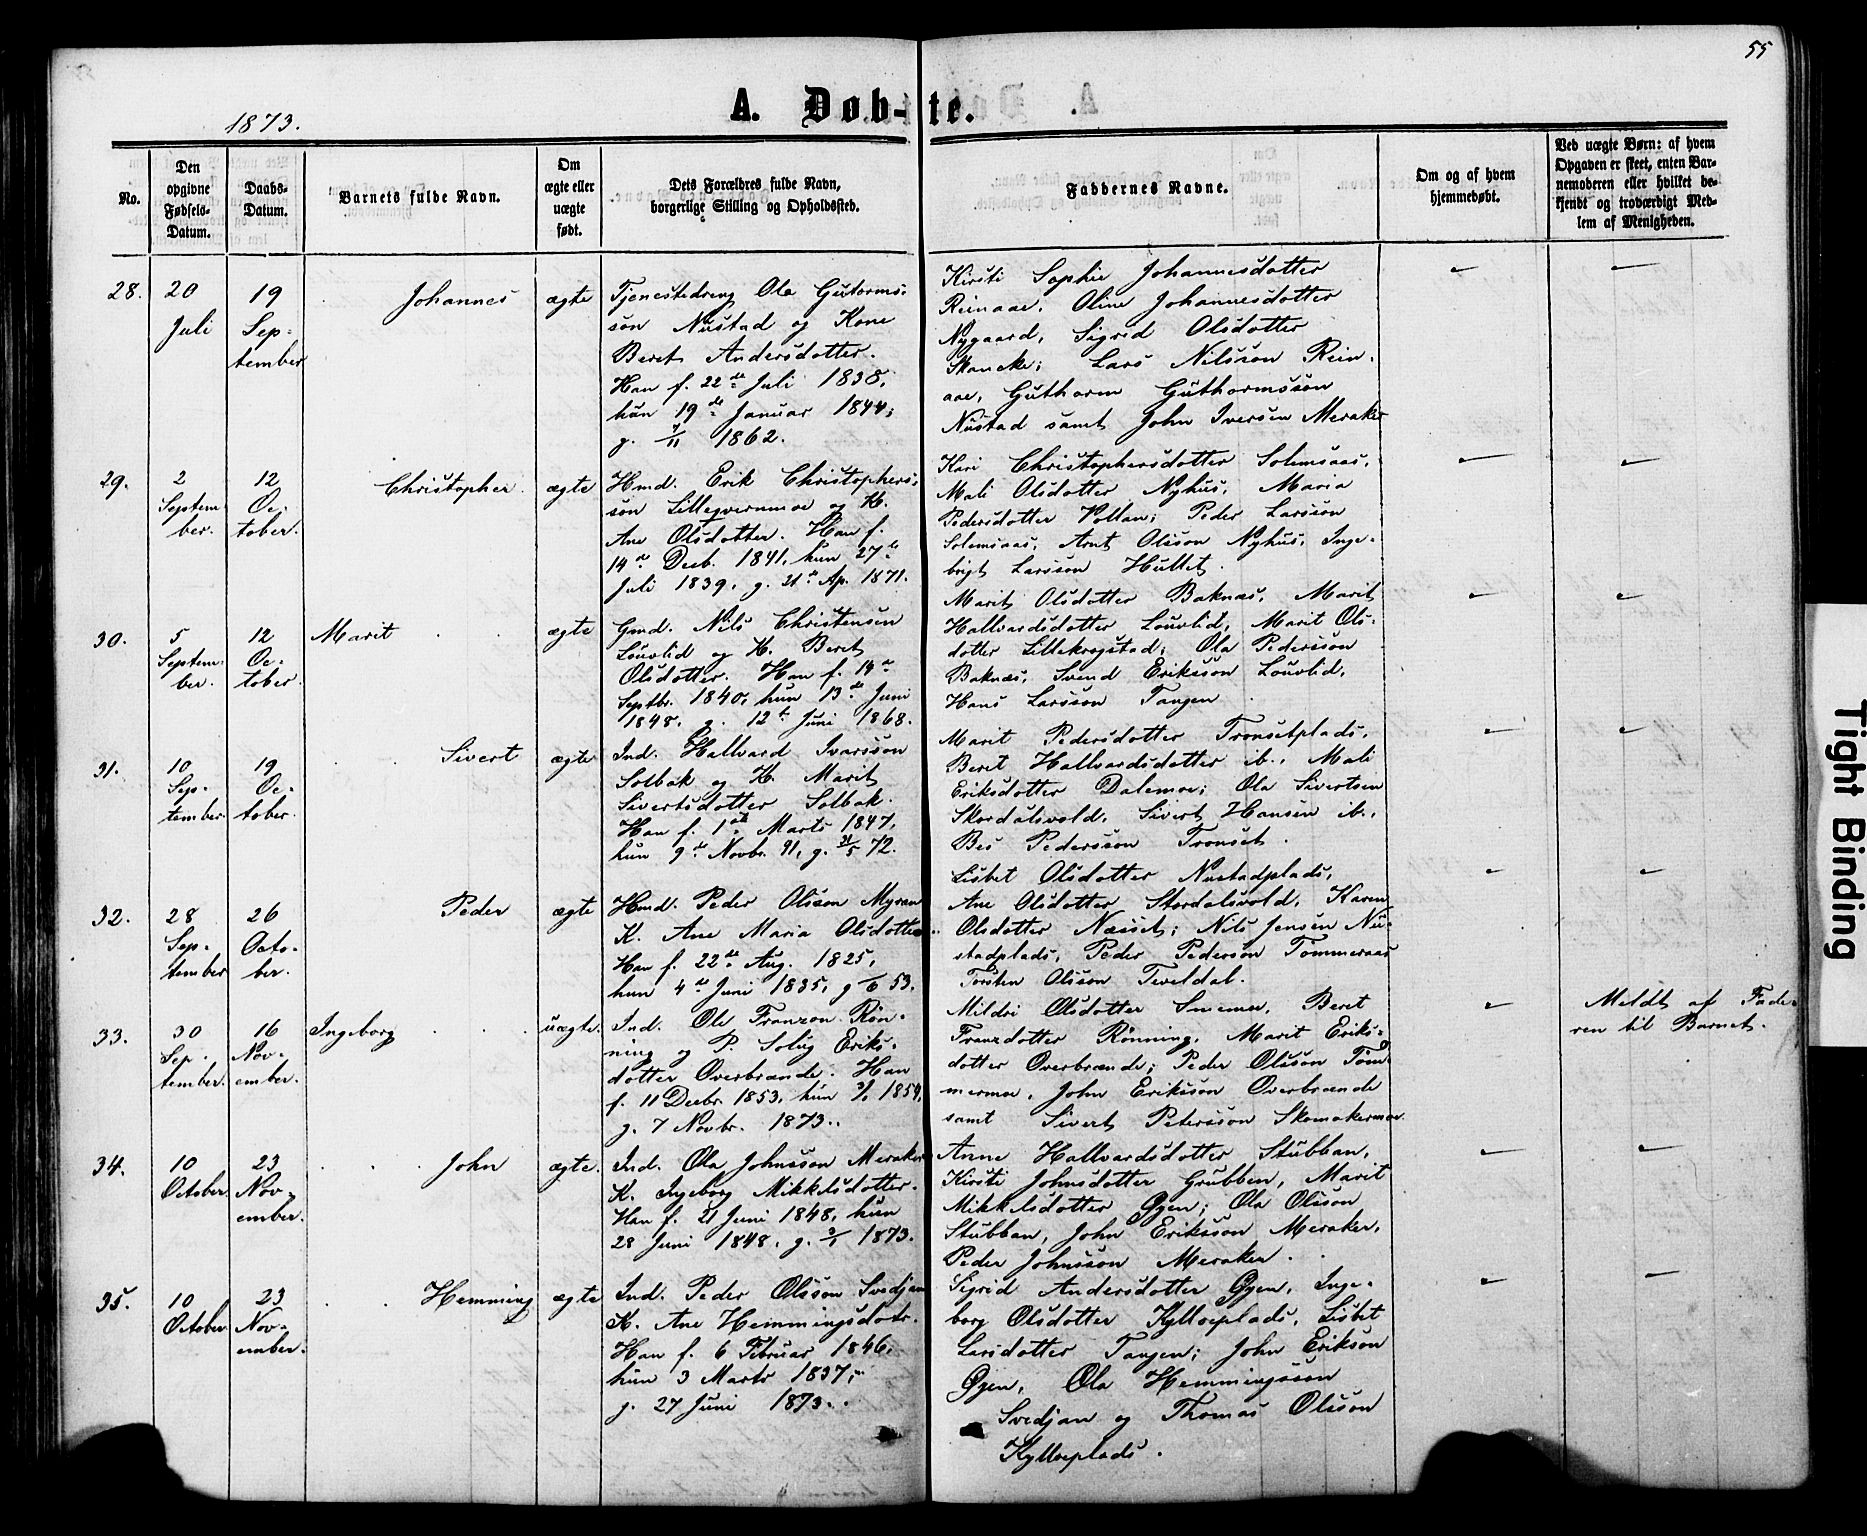 55
1873.
A. Døb-te.
No.
Den opgivne Fødsels-Datum.
Daabs-Datum.
Barnets fulde Navn.
Om ægte eller uægte født.
Dets Forældres fulde Navn, borgerlige Stilling og Opholdssted.
Faddernes Navne.
Om og af hvem hjemmedøbt.
Ved uægte Børn: af hvem Opgaven er skeet, enten Barnemoderen eller hvilket bekjendt og troværdigt Medlem af Menigheden.
28.
20
Juli
19
Sep-
tember
Johannes
ægte
Tjenestedreng Ole Gutorms-
søn Nustad og Kone
Beret Andersdotter.
Han f. 22de Juli 1838,
hun 19de Januar 1844;
g. 7/11 1862.
Kirsti Sophie Johannesdotter
Reinaae, Oline Johannesdotter
Nygaard, Sigrid Olsdotter
Skancke; Lars Nilsson Rein-
aae, Guthorm Guthormssøn
Nustad samt John Iversen Meraker
29.
2
Septem-
ber.
12
Oc-
tober.
Christopher.
ægte
Hmd. Erik Christophers-
søn Lillegvernmoe og K.
Ane Olsdotter. Han f.
14de Decb. 1841, hun 27de
Juli 1839, g. 21de Ap. 1871.
Kari Christophersdotter Solemsaas,
Mali Olsdotter Nyhus, Maria
Pedersdotter Vollan; Peder Larsson
Solemsaas, Arnt Olsson Nyhus, Inge-
brigt Larsson Hullet.
30.
5
Septem-
ber.
12
Oc-
tober.
Marit
ægte
Gmd. Nils Christensen
Louvlid og K. Beret
Olsdotter. Han f. 14de
Septbr. 1840, hun 13de Juni
1848. g. 12te Juni 1868.
Marit Olsdotter Baknæs, Marit
Hallvardsdotter Louvlid, Marit Ols-
dotter Lillekrogstad; Ola Pedersson
Baknæs, Svend Eriksson Louvlid,
Hans Larsson Tangen
31.
10
Sep-
tember.
19
Oc-
tober.
Sivert
ægte
Ind. Hallvard Ivarsson
Solbak og K. Marit
Sivertsdotter Solbak.
Han f. 1ste Marts 1847,
hun 9de Novbr. 41, g. 31/5 72.
Marit Pedersdotter Tronsetplads,
Beret Hallvardsdotter ib., Mali
Eriksdotter Dalemoe; Ola Sivertsen
Skordalsvold, Sivert Hansen ib.,
Bes Pedersson Tronset.
32.
28
Sep-
tember
26
Octo-
ber.
Peder
ægte
Hmd. Peder Olsson Myran
K. Ane Maria Olsdotter.
Han f. 22de Aug. 1825,
hun 4de Juni 1835, g 53.
Lisbet Olsdotter Nustadplads,
Ane Olsdotter Stordalsvold, Karen
Olsdotter Næsset; Nils Jensen Nu-
stadplads, Peder Pederson Tømmeraas
Torsten Olsson Teveldal.
33.
30
Sep-
tember.
16
Nov-
ember.
Ingeborg
uægte.
Ind. Ole Franzon Røn-
ning og P. Solvg Eriks-
dotter Overbrande. Han
f. 11 Decbr. 1853, hun 1854,
g. 7 Novbr. 1873.
Mildri Olsdotter Smemo, Beret
Franzdotter Rønning, Marit Eriks-
dotter Overbrænde; Peder Olsson Tøm-
mermoe, John Eriksson Overbrænde
samt Sivert Petersson Skomakermoe.
Meldt af Fade-
ren til Barnet.
34.
10
October.
23
Nov-
ember.
John
ægte.
Ind. Ola Johnsson Meraker
K. Ingeborg Mikkelsdotter.
Han f. 21 Juni 1848, hun
28 Juni 1848. g. 1873.
Anne Hallvardsdotter Stubban,
Kirsti Johnsdotter Grubben, Marit
Mikkelsdotter Øyen; Ola Olsson
Stubban, John Eriksson Meraker,
Peder Johnsson Meraker.
35.
10
October
23
Nov-
ember.
Hemming
ægte
Ind. Peder Olsson Svedjan
K. Ane Hemmingsdotr.
Han f. 6 Februar 1846,
hun 3 Marts 1837,
g. 27 Juni 1873.
Sigrid Andersdotter Øyen, Inge-
borg Olsdotter Kylloeplads, Lisbet
Larsdotter Tangen; John Erikson
Øyen, Ola Hemmingsson
Svedjan og Thomas Olsson
Kylloeplads.
Tight Binding